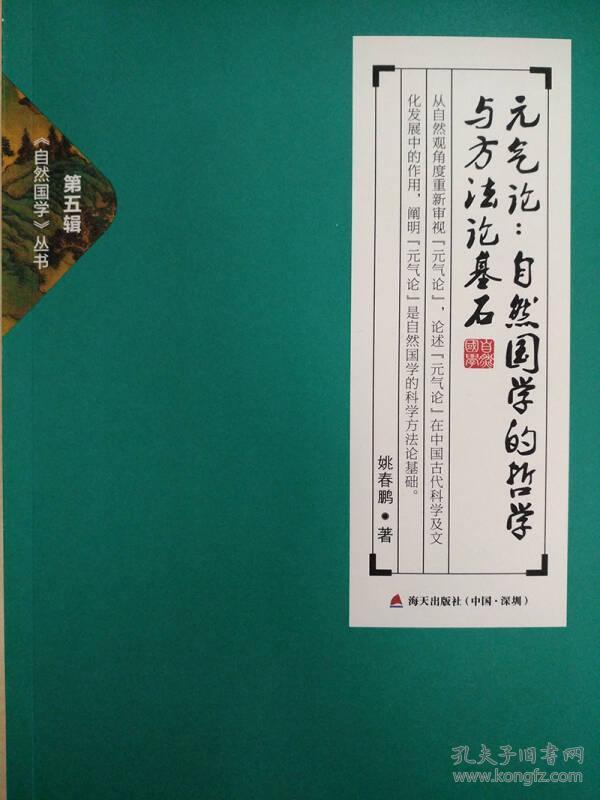 元气论：自然国学的哲学
与方法论基石
自然
國學
从自然观角度重新审视『元气论』，论述『元气论』在中国古代科学及文
化发展中的作用，阐明『元气论』是自然国学的科学方法论基础。
姚春鹏·著
海天出版社（中国·深圳）
第五辑
《自然国学》丛书
孔夫子旧书网
www.kongfz.com